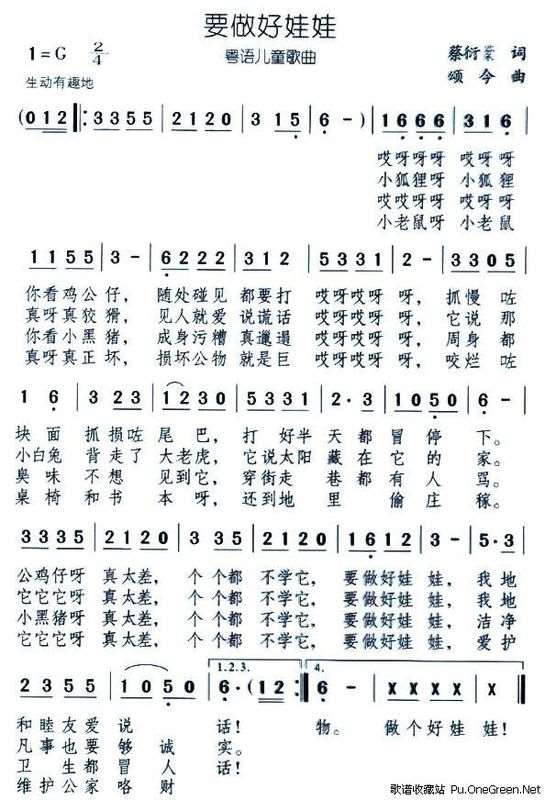 要做好娃娃
粤语儿童歌曲
1=G 2/4
蔡衍 词
颂今 曲
生动有趣地
(012 ‖: 3355 | 2120 | 3 15 | 6 -) | 1666 | 316 |
哎呀呀呀 哎呀呀
小狐狸呀 小狐狸
哎哎哎呀 哎呀呀
小老鼠呀 小老鼠
1155 | 3 - | 6222 | 312 | 5331 | 2 - | 3305 |
你看鸡公仔, 随处碰见 都要打 哎呀哎呀 呀, 抓慢咗
真呀真狡猾, 见人就爱 说谎话 哎呀哎呀 呀, 它说那
你看小黑猪, 成身污糟 真邋遢 哎呀哎呀 呀, 周身都
真呀真正坏, 损坏公物 就是巨 哎呀哎呀 呀, 咬烂咗
1 6 | 3 23 | 1230 | 5331 | 2·3 | 1050 | 6 - |
块面 抓损咗 尾巴, 打好半 天都 冒停 下。
小白兔 背走了 大老虎, 它说太阳 藏在 它的 家。
臭味 不想 见到它, 穿街走 巷都 有人 骂。
桌椅 和书 本呀, 还到地 里 偷庄 稼。
3335 | 2120 | 3335 | 2120 | 1612 | 3 - | 5·3 |
公鸡仔呀 真太差, 个个都 不学它, 要做好娃 娃, 我地
它它它呀 真太差, 个个都 不学它, 要做好娃 娃, 凡事
小黑猪呀 真太差, 个个都 不学它, 要做好娃 娃, 洁净
它它它呀 真太差, 个个都 不学它, 要做好娃 娃, 爱护
1.2.3. 4.
2355 | 1050 | 6·(12 :‖ 6 - | X X | X X ‖
和睦友爱 说 话! 物。 做个好娃娃!
凡事也要 够诚 实。
卫生都 冒人 话!
维护公家 咯财
歌谱收藏站 Pu.OneGreen.Net